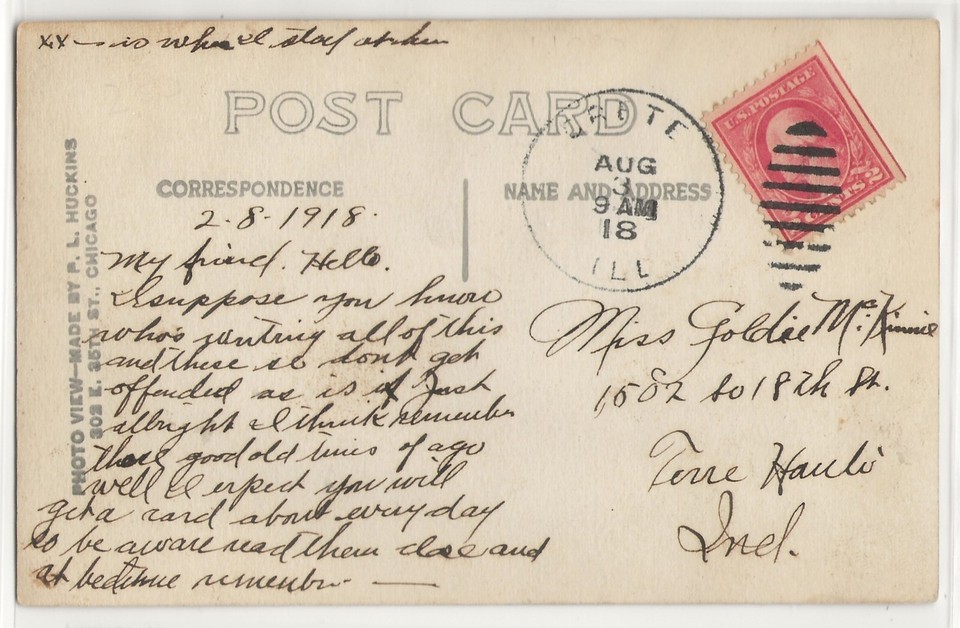 xx — is where I stay at when
POST CARD
CORRESPONDENCE
NAME AND ADDRESS
PHOTO VIEW—MADE BY P. L. HUCKINS
302 E. 35TH ST., CHICAGO
AUG
3
9 AM
18
ILL
U.S. POSTAGE
2 CENTS 2
2-8-1918.
My friend. Hello.
I suppose you know
who's writing all of this
and these so dont get
offended as is it Just
allright I think remember
those good old times of ago
well I expect you will
get a card about every day
so be aware read them close and
at bedtime remember —
Miss Goldie McKinnie
1502 So 18th St.
Terre Haute
Ind.